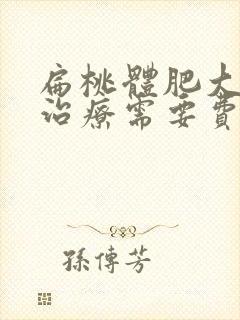 扁桃體肥大
治療需要費
孫傳芳